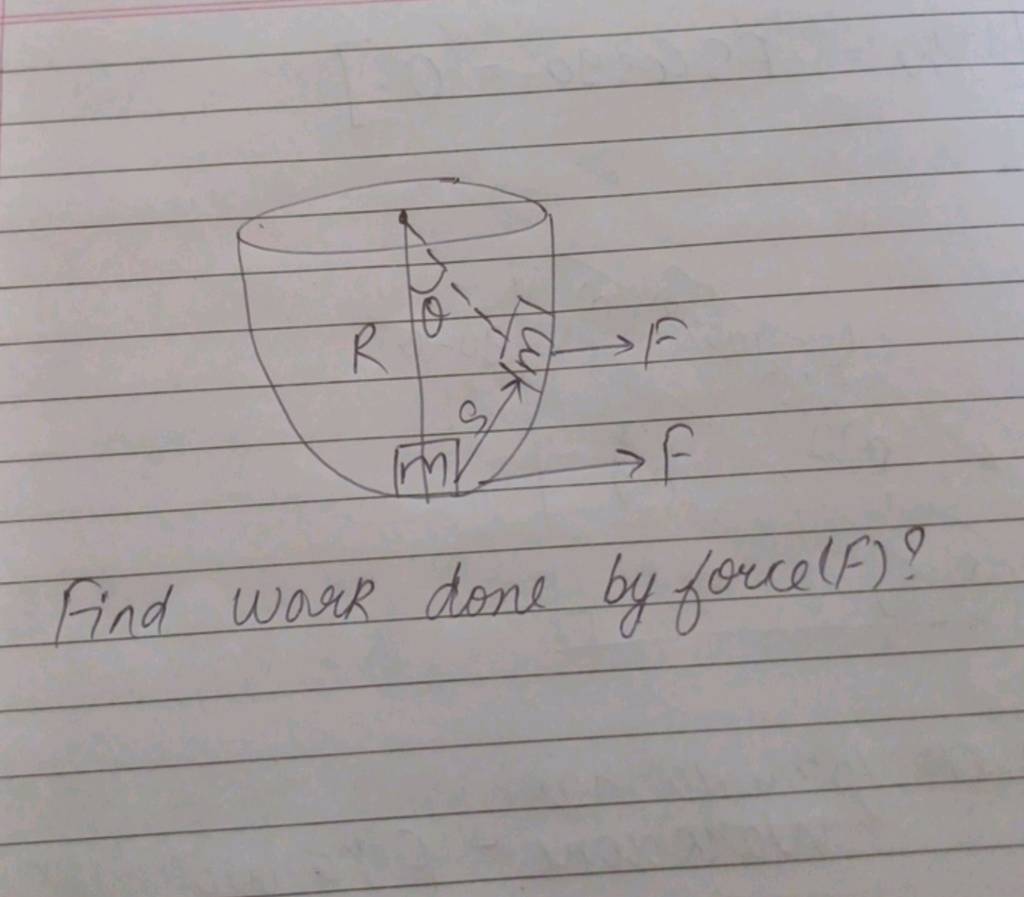 θ
R
m
F
S
m
F
Find work done by force(F)?